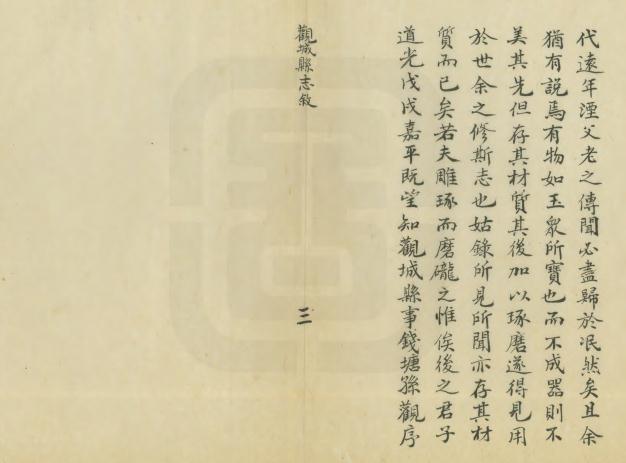 代遠年湮父老之傳聞必盡歸於泯然矣且余
猶有說焉有物如玉衆所寶也而不成器則不
美其先但存其材質其後加以琢磨遂得見用
於世余之修斯志也姑錄所見所聞亦存其材
質而已矣若夫雕琢而磨礲之惟俟後之君子
道光戊戌嘉平既望知觀城縣事錢塘孫觀序
觀城縣志敘
三